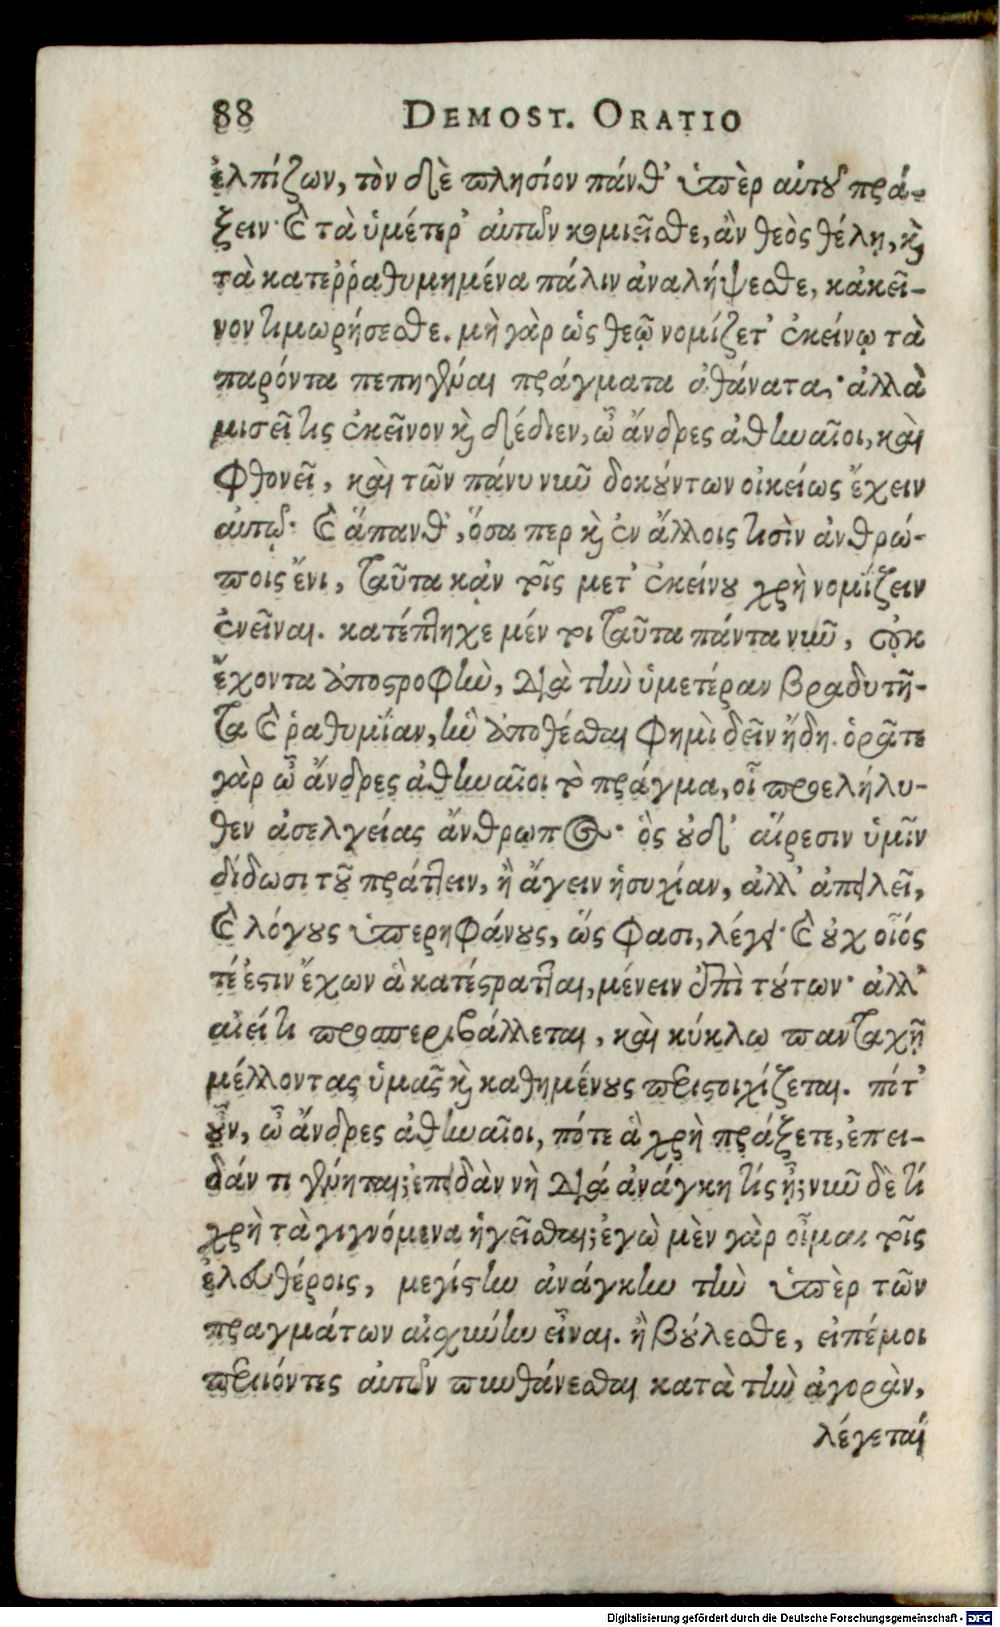 88 DEMOST. ORATIO
ἐλπίζων, τὸν δὲ πλησίον πάνθ᾽ ὑπὲρ αὑτοῦ πρά-
ξειν· καὶ τὰ ὑμέτερ᾽ αὐτῶν κομιεῖσθε, ἂν θεὸς θέλῃ, καὶ
τὰ κατεῤῥαθυμημένα πάλιν ἀναλήψεσθε, κἀκεῖ-
νον τιμωρήσεσθε. μὴ γὰρ ὡς θεῷ νομίζετ᾽ ἐκείνῳ τὰ
παρόντα πεπηγέναι πράγματα ἀθάνατα· ἀλλὰ
μισεῖ τις ἐκεῖνον καὶ δέδιεν, ὦ ἄνδρες ἀθηναῖοι, καὶ
φθονεῖ, καὶ τῶν πάνυ νῦν δοκούντων οἰκείως ἔχειν
αὐτῷ· καὶ ἅπανθ᾽, ὅσα περ καὶ ἐν ἄλλοις τισὶν ἀνθρώ-
ποις ἔνι, ταῦτα κἀν τοῖς μετ᾽ ἐκείνου χρὴ νομίζειν
ἐνεῖναι. κατέπτηχε μέν τοι ταῦτα πάντα νῦν, οὐκ
ἔχοντα ἀποστροφὴν, διὰ τὴν ὑμετέραν βραδυτῆ-
τα καὶ ῥαθυμίαν, ἣν ἀποθέσθαι φημὶ δεῖν ἤδη. ὁρᾶτε
γὰρ ὦ ἄνδρες ἀθηναῖοι τὸ πράγμα, οἷ προελήλυ-
θεν ἀσελγείας ἄνθρωπος· ὃς οὐδ᾽ αἵρεσιν ὑμῖν
δίδωσι τοῦ πράττειν, ἢ ἄγειν ἡσυχίαν, ἀλλ᾽ ἀπειλεῖ,
καὶ λόγους ὑπερηφάνους, ὥς φασι, λέγει· καὶ οὐχ οἷός
τέ ἐστιν ἔχων ἃ κατέστραπται, μένειν ἐπὶ τούτων· ἀλλ᾽
αἰεί τι προσπεριβάλλεται, καὶ κύκλω πανταχῇ
μέλλοντας ὑμᾶς καὶ καθημένους περιστοιχίζεται. πότ᾽
οὖν, ὦ ἄνδρες ἀθηναῖοι, πότε ἃ χρὴ πράξετε, ἐπει-
δάν τι γένηται; ἐπειδὰν νὴ Διά ἀνάγκη τίς ᾖ; νῦν δὲ τί
χρὴ τὰ γιγνόμενα ἡγεῖσθαι; ἐγὼ μὲν γὰρ οἶμαι τοῖς
ἐλευθέροις, μεγίστην ἀνάγκην τὴν ὑπὲρ τῶν
πραγμάτων αἰσχύνην εἶναι. ἢ βούλεσθε, εἰπέμοι
περιιόντες αὐτῶν πυνθάνεσθαι κατὰ τὴν ἀγορὰν,
λέγεταί
Digitalisierung gefördert durch die Deutsche Forschungsgemeinschaft - DFG